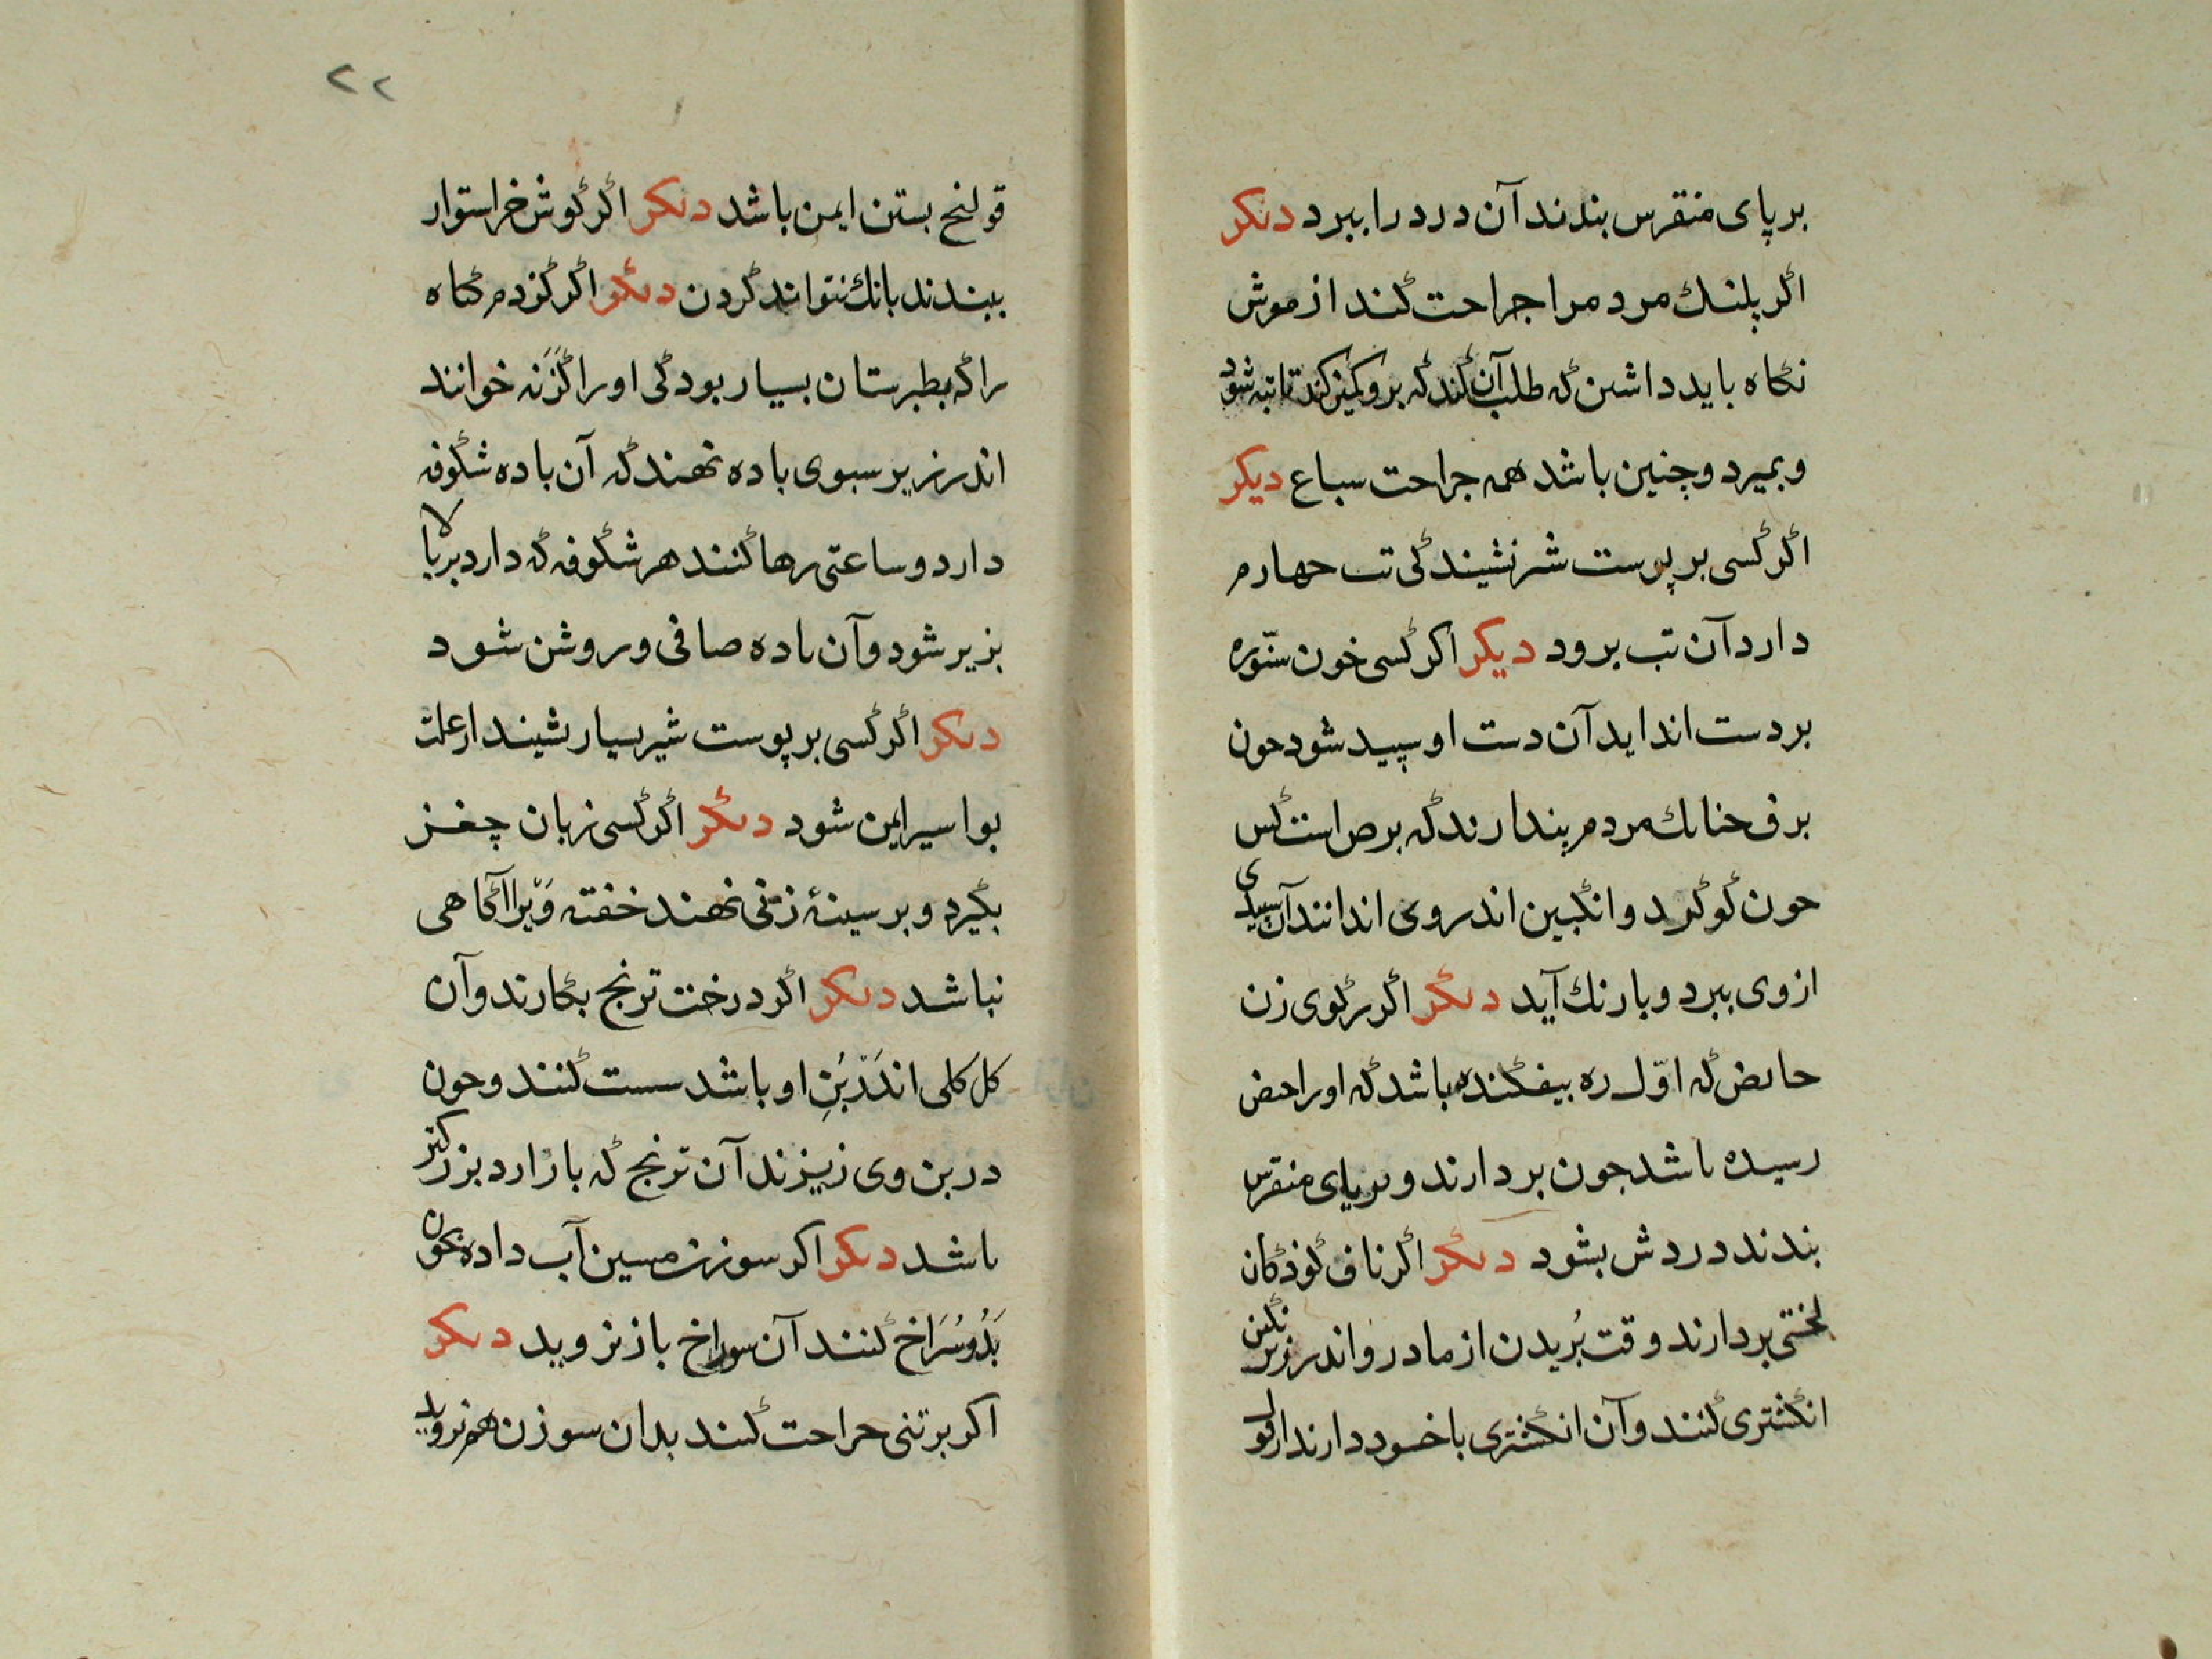 بر پای منقرس بندند آن درد را ببرد دیکر
اگر پلنك مردم را جراحت كند از موش
نگاه باید داشتن که طلب آن كند که برو کمیز کند تا تبه شود
و بمیرد و چنین باشد همه جراحت سباع دیکر
اگر کسی بر پوست شیر نشیند کی تب چهارم
دارد آن تب برود دیکر اکر کسی خون ستّوره
بر دست انداید آن دست او سپید شود چون
برف چنانك مردم پندارند که برص است پس
چون گوگرد و انگبین اندر وی اندانند آن سپیدی
از وی ببرد و بارنك آید دیگر اگر رگوی زن
حایض که اوّل ره بیفکنده باشد که او را حیض
رسیده باشد چون بردارند و بر پای منقرس
بندند دردش بشود دیگر اگر ناف کوذکان
لختی بردارند وقت بُریدن از مادر و اندر زیر نگین
انگشتری کنند و آن انگشتری با خود دارند از قو
۲۲
قولنج بستن ایمن باشد دیکر اگر گوش خر استوار
ببندند بانك نتواند کردن دیگر اگر گزدم گیاه
را که بطبرستان بسیار بود کی او را گَزَنه خوانند
اندر زیر سبوی باده نهند که آن باده شگوفه
دارد و ساعتی رها کنند هر شگوفه که دارد بر بالا
بزیر شود و آن باده صافی و روشن شود
دیکر اگر کسی بر پوست شیر بسیار نشیند از علت
بواسیر ایمن شود دیگر اگر کسی زبان چغز
بگیرد و بر سینهٔ زنی نهند خفته وَیرا آگاهی
نباشد دیکر اگر درخت ترنج بکارند و آن
کل کلی اندَر بُنِ او باشد سست کنند و چون
در بن وی زیزند آن ترنج که بار ارد بزرکتر
باشد دیکر اکر سوزن مسین آب داده بخون
بَدُو سُرَاخ کنند آن سوراخ باز نروید دیکر
اکر بر تنی جراحت کنند بدان سوزن هم نروید